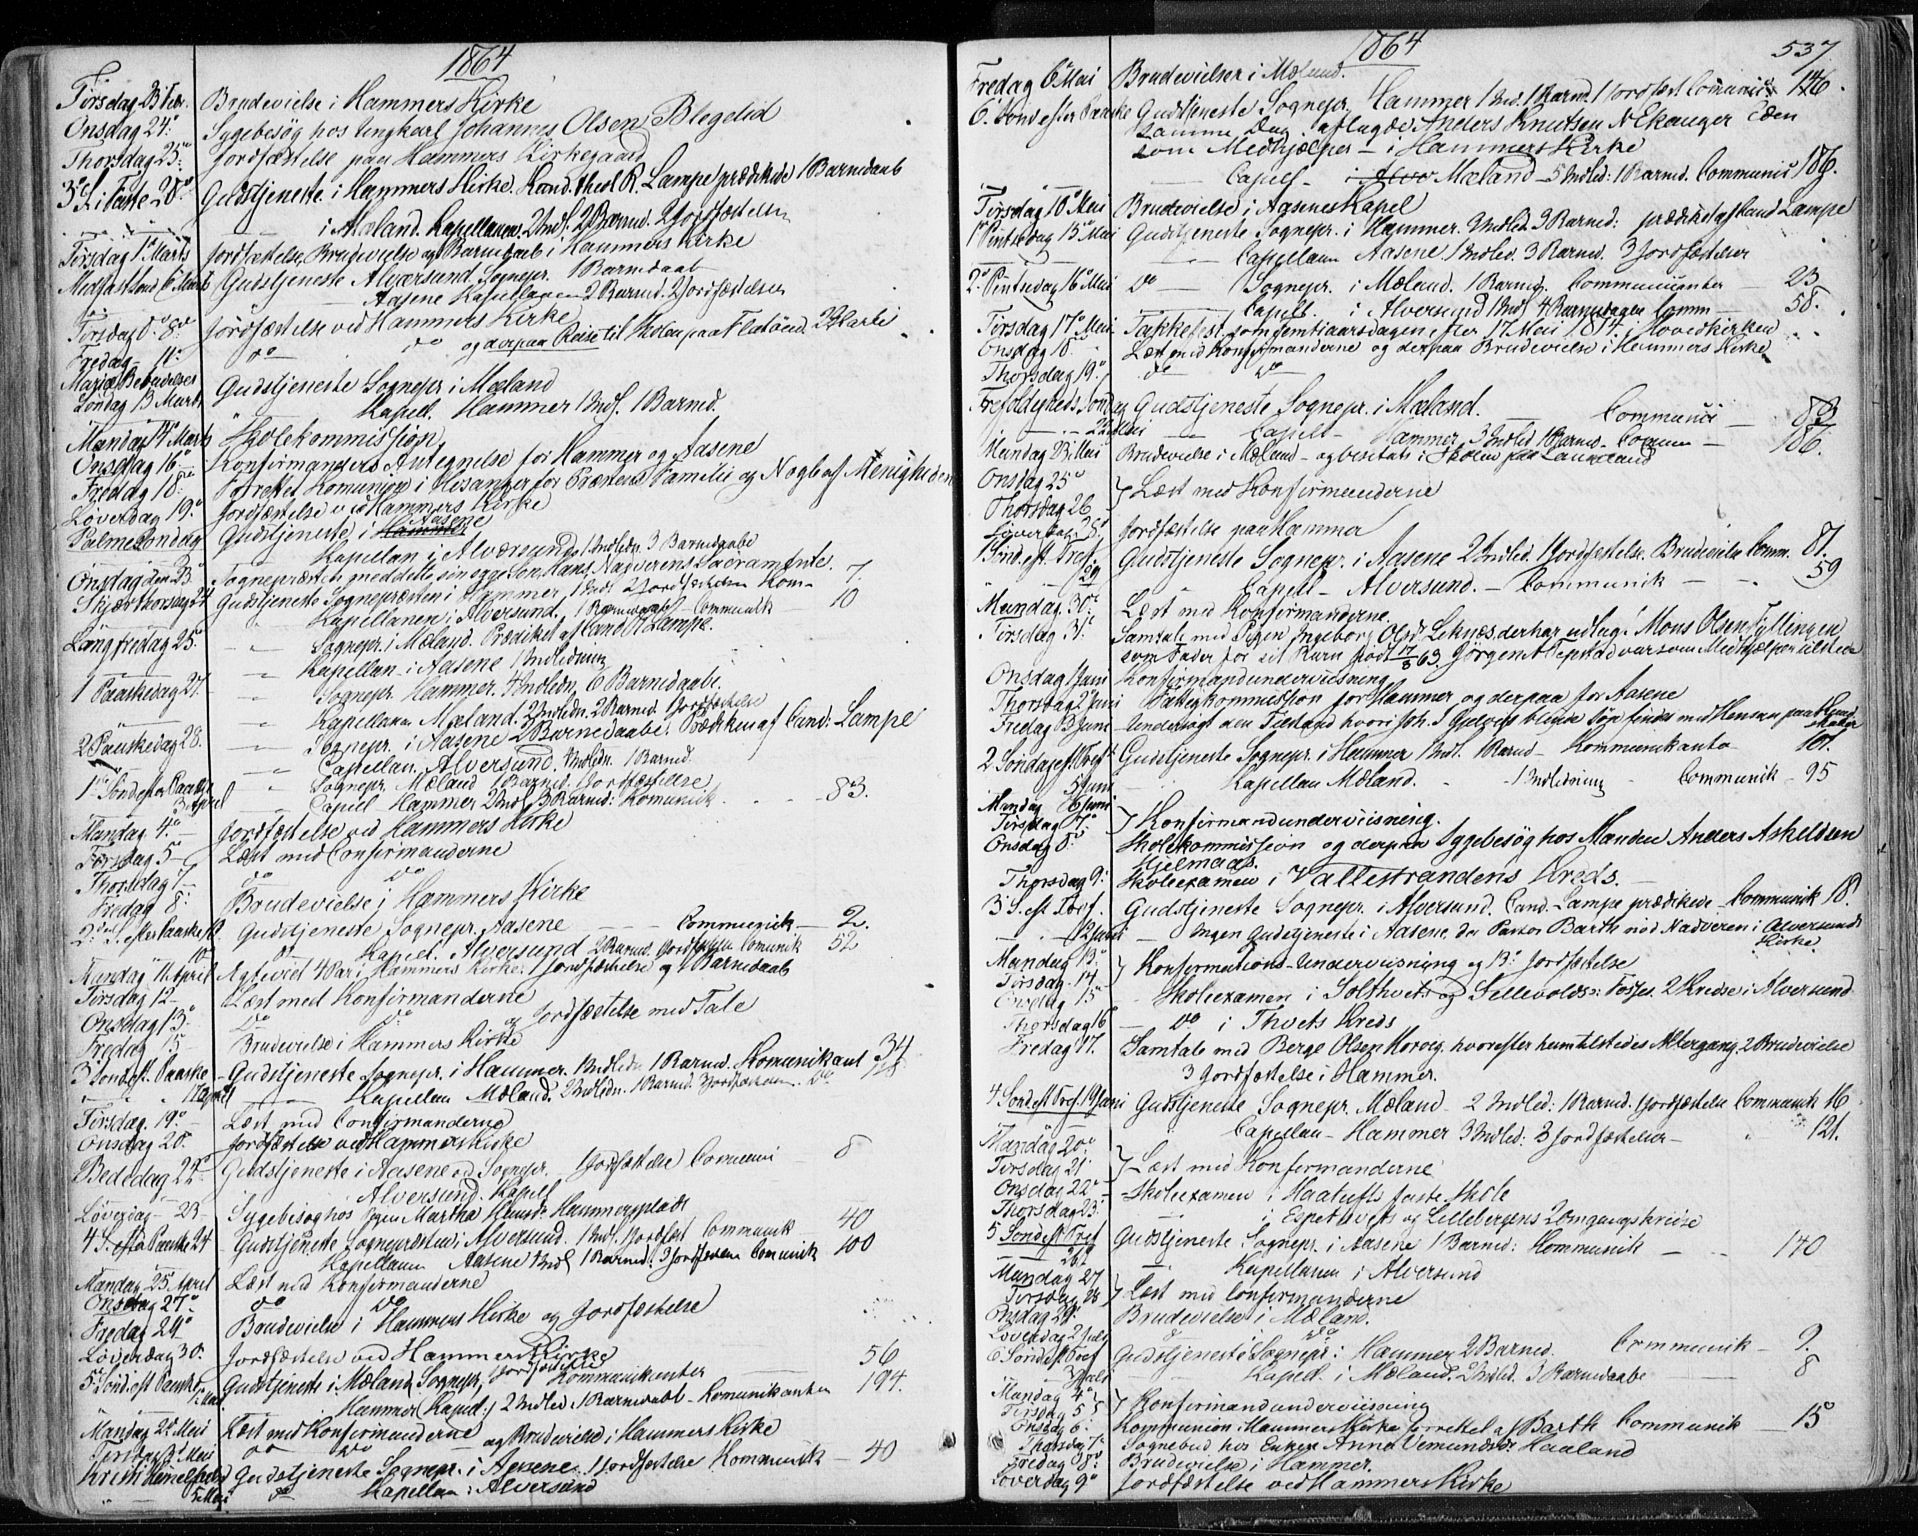 1864
Tirsdag 23 Febr. Brudevielse i Hammers Kirke
Onsdag 24de Sygebesøg hos Ungkarl Johannes Olsen Blegelid
Thorsdag 25de Jordfæstelse paa Hammers Kirkegaard
3de S. i Faste 28de Gudstjeneste i Hammers Kirke. Kand. theol R. Lampe prædikede 1 Barnedaab
i Mæland. Kapellanen. 2 Indl. 2 Barned. 2 Jordfæstelser
Tirsdag 1ste Marts Jordfæstelse, Brudevielse og Barnedaab i Hammers Kirke
Midfastsønd 6 Marts Gudstjeneste Alversund Sognepr. 1 Barnedaab
Aasene Kapellanen 2 Barned. 2 Jordfæstelser
Tirsdag 8de Jordfæstelse ved Hammers Kirke
Fredag 11te do do og derpaa Reise til
Mariæ Bebudelses Gudstjeneste Sognepr. i Mæland
Søndag 13 Marts Kapell. Hammer 1 Indl. 1 Barned.
Mandag 14 Marts Skolekommission
Onsdag 16de Konfirmanders Antegnelse for Hammer og Aasene
Fredag 18de Forrettet Komunion i for Præstens Familie og Nogle af Menigheden
Løverdag 19de Jordfæstelse ved Hammers Kirke
Palmesøndag Gudstjeneste i Aasene
Kapellan i Alversund 1 Indledn. 3 Barnedaabe
Onsdag den 23 Sognepræsten meddelte sin egen Søn, Hans Nadverens Sacramente.
Skjærthorsdag 24 Gudstjeneste Sognepræsten i Hammer, 1 Indl 2 Jordfæstelser Kom— 7.
Kapellanen i Alversund. 1 Barnedaab — Communik — 10
Langfredag 25de Sognepr. i Mæland. Prædiket af Cand R Lampe.
Kapellan i Aasene 1 Indledning
1 Paaskedag 27. Sognepr. Hammer. 4 Indledn. 6 Barnedaabe.
Kapellan Mæland. 2 Indledn. 2 Barned 1 Jordfæstelse
2 Paaskedag 28. Sognepr. i Aasene 2 Barnedaabe. Prædiken af Cand. Lampe
Capellan. Alversund. Indledn. 1 Barned.
1ste Sønd efter Paaske Sognepr. Mæland 1 Barned. 1 Jordfæstelse
3 April Capell Hammer 2 Indl 3 Barned: Komunik. 83.
Mandag 4de Jordfæstelse ved Hammers Kirke
Tirsdag 5 — Læst med Confirmanderne
Thorsdag 7 — do do
Fredag 8de Brudevielse i Hammers Kirke
2den S. efter Paaske 10 Gudstjeneste Sognepr. Aasene — Communik — 2.
Kapel. Alversund 2 Barned. Jordfæstelse Comunik 52
Mandag 11 April Ægteviet 4 Par i Hammers Kirke. 1 Jordfæstelse og 1 Barnedaab
Tirsdag 12 — Læst med Konfirmanderne
Onsdag 13de do do og Jordfæstelse med Tale
Fredag 15 — Brudevielse i Hammers Kirke
3 Sønd eft. Paaske Gudstjeneste Sognepr. i Hammer. 1 Indledn 1 Barned. Komunikant 34
17 April Kapellan Mæland. 2 Indledn. 1 Barned 3 Jordfæstelser. do
Tirsdag. 19de Læst med Confirmanderne
Onsdag 20de Jordfæstelse ved Hammers Kirke
Bededag 22de Gudstjeneste i Aasene ved Sognepr. 1 Jordfæstelse Comuni 8
Alversund. Kapell
Løverdag 23 Sygebesøg hos Pigen Martha Hansd. Hammersplads
4 S. efter Paaske 24 Gudstjeneste Sognepræsten i Alversund. 1 Indl. 1 Jordfæst Communik 40
Kapellanen Aasene 1 Indl 1 Barned. 3 Jordfæstelser Comunik 100
Mandag 25 April Læst med Konfirmanderne
Onsdag 27de do do
Fredag 29de Brudevielse i Hammers Kirke og Jordfæstelse
Løverdag 30te Jordfæstelse ved Hammers Kirke
5te Sønd eft Paaske Gudstjeneste i Mæland Sognepr, Jordfæstelse Kommunikanter 56
1 Mai Hammer (Kapel:) 2 Indled 1 Barnedaab — Komunikanter 194.
Mandag 2de Mai Læst med Konfirmanderne
Tirsdag 3 Mai do do og Brudevielse i Hammers Kirke
Kristi Himmelfartsd Gudstjeneste Sognepr. i Aasene. 1 Jordfæstelse Kommunik — 40
5 Mai do Kapellan i Alversund
1864 537
Fredag 6te Mai Brudevielser i Mæland.
6. Sønd efter Paaske Gudstjeneste Sognepr. Hammer 1 Ind. 1 Barned. 1 Jordfæst. Comunic 146.
Samme Dag aflagde Anders Knutsen N Ekanger Eden
som Medhjælper i Hammers Kirke
Capell — Mæland — 5 Indled: 1 Barned. Communic 186.
Tirsdag 10de Mai Brudevielse i Aasenes Kapel
1ste Pintsedag 15 Mai Gudstjeneste Sognepr. i Hammer. Indled. 3 Barned: prædiket af Cand Lampe
Capellan Aasene 1 Indled. 3 Barned. 3 Jordfæstelser
2. Pintsedag 16 Mai do Sognepr. i Mæland. 1 Barned. Communicanter — 23
Capell. i Alversund 1 Indl 4 Barnedaaben Comm — 58.
Tirsdag 17de Mai Takkefest som femtiaarsdagen efter 17 Mai 1814. i Hovedkirken
Onsdag 18de Læst med Konfirmanderne og derpaa Brudevielse i Hammers Kirke
Thorsdag 19de do do
Trefoldigheds Søndag Gudstjeneste Sognepr. i Mæland. Communic 83
22 Mai Capell — Hammer, 3 Indled 1 Barned — Comm — 186.
Mandag 23. Mai Brudevielse i Mæland — og visitats i Skolen paa
Onsdag 25de } Læst med Konfirmanderne
Thorsdag 26
Løverdag 28de Jordfæstelse paa Hammer
1 Sønd. eft. Tref. Gudstjeneste Sognepr. i Aasene 2 Indled 1 Jordfæstelse. Brudevielse Comm. 87.
29 Capell — Alversund. — Communik — 59
Mandag. 30te Læst med Konfirmanderne.
Tirsdag 31te Samtale med Pigen Ingeborg Olsd Leknæs, der har udlagt Mons Olsen Fyllingen
som Fader for sit Barn født 17/5 63. Jørgen N Tepstad var som Medhjælper tilstede
Onsdag 1 Juni Konfirmandunderviisning
Thorsdag 2 Juni Fattigkommission for Hammer og derpaa for Aasene
Fredag 3 Juni
2 Søndag eft Tref. Gudstjeneste Sognepr. i Hammer 1 Indl. 1 Barned — Kommunikanter — 101.
5 Juni Kapellan Mæland. — 1 Indledning — Communik — 95
Mandag 6 Juni } Konfirmandunderviisning.
Tirsdag 7de
Onsdag 8de Skolekommission og derpaa Sygebesøg hos Manden Anders Askeldsen
Hjelmaas.
Thorsdag 9de Skoleexamen i Vallestrandens Kreds.
3 S. eft Tref. Gudstjeneste Sognepr. i Alversund. Cand. Lampe prædikede — Communik 18.
12 Juni — Ingen Gudstjeneste i Aasene, da Pastor Barth med Nadveren i Alversunds
Kirke
Mandag 13de } Konfirmations-Underviisning og 13de Jordfæstelse
Tirsdag. 14
Onsdag 15de Skoleexamen i Solthveits og Sellevolds 2 Kredse i Alversund
Thorsdag 16 — do i Thveits Kreds
Fredag 17. Samtale med Berge Olsen Morvig, hvorefter ham tilstedes Altergang. 2 Brudevielse
3 Jordfæstelse i Hammer.
4 Sønd eft Tref. 19 Juni Gudstjeneste Sognepr. Mæland — 2 Indled: 1 Barned. 1 Jordfæstelse Communik 16
Capellan — Hammer 3 Indled: 3 Jordfæstelser — 121.
Mandag 20de } Læst med Konfirmanderne
Tirsdag 21de
Onsdag 22de Skoleexamen i Haatufts faste Skole
Thorsdag 23de i Espetveits og Lillebergens 2 omgangskredse
5 Sønd eft Tref Gudstjeneste Sognepr. i Aasene 1 Barned: Kommunik — 140
26de Kapellanen i Alversund
Mandag 27 } Læst med Confirmanderne
Tirsdag 28
Onsdag 29de Brudevielse i Mæland.
Løverdag 2 Juli do
6 Sønd eft Tref Gudstjeneste Sognepr. i Hammer 2 Barned. Communik — 9.
3 Juli Kapell. i Mæland. 2 Indled. 3 Barnedaabe 8
Mandag 4de } Konfirmandunderviisning
Tirsdag 5
Onsdag 6. Kommunion i Hammers Kirke forrettet af Barth Communik 15
Thorsdag 7de Sognebud hos Enken Anna Vemundsdtr Haaland
Fredag 8de Brudevielse i Hammer.
Løverdag 9de Jordfæstelse ved Hammers Kirke